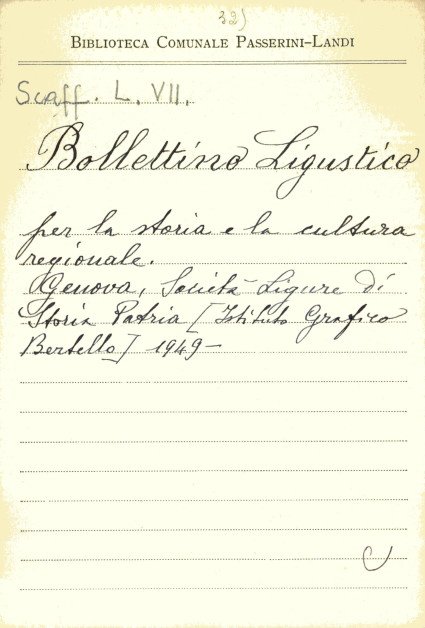 32)
BIBLIOTECA COMUNALE PASSERINI-LANDI
Scaff. L. VII.
Bollettino Ligustico
per la storia e la cultura
regionale.
Genova, Società Ligure di
Storia Patria [Istituto Grafico
Bertello] 1949-